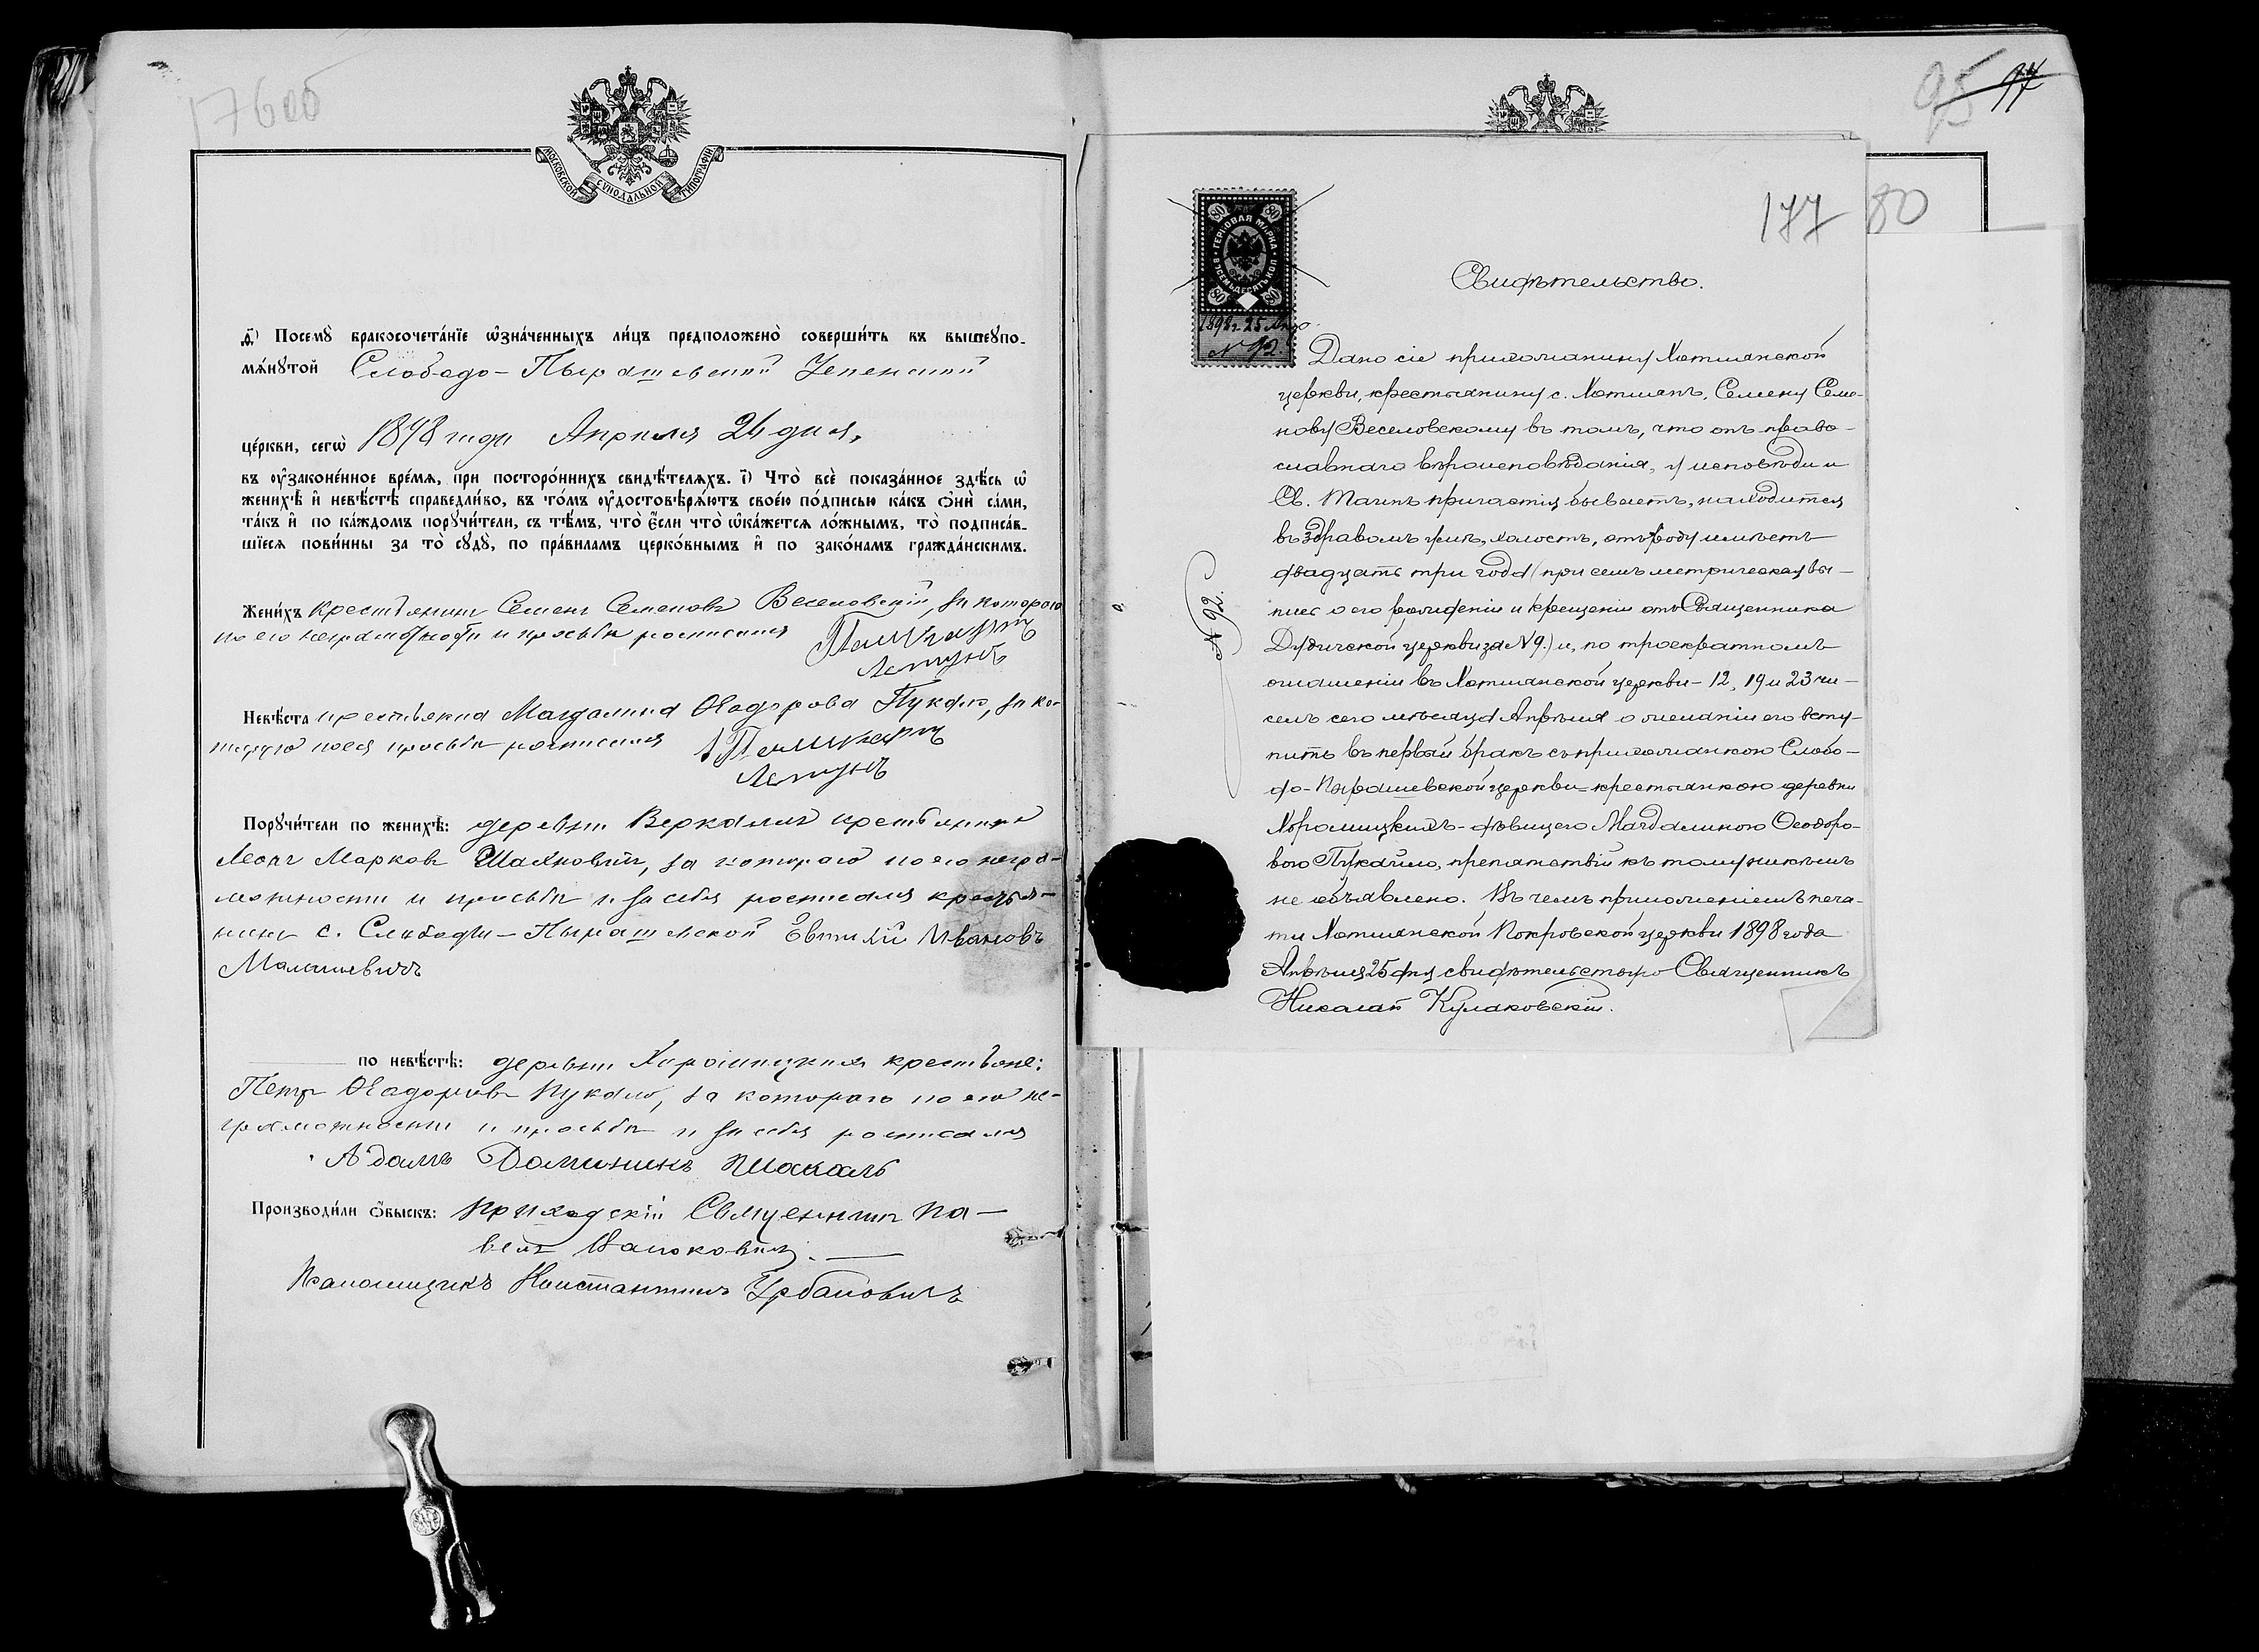 176об
МОСКОВСКОЙ СѴНОДАЛЬНОЙ ТИПОГРАФІИ
д҃) Посемꙋ̀ бракосочета́нїе ѡ҆зна́ченныхъ ли́цъ предположено̀ соверши́ть въ вышеꙋпо-
мѧ́нꙋтой Слободо-Пырашевской Успенской
це́ркви, сегѡ̀ 1898 года Апрѣля 26 дня,
въ ᲂу҆зако́ненное вре́мѧ, при посторо́ннихъ свидѣ́телѧхъ. і҃) Что̀ всѐ показа́нное здѣ́сь ѡ҆
женихѣ̀ и҆ невѣ́стѣ справедли́во, въ то́мъ ᲂу҆достовѣрѧ́ютъ свое́ю по́дписью ка́къ ѻ҆нѝ са́ми,
та́къ и҆ по ка́ждомъ порꙋчи́тели, съ тѣ́мъ, что̀ є҆́сли что̀ ѡ҆ка́жетсѧ ло́жнымъ, то̀ подписа́в-
шїесѧ пови́нны за то̀ сꙋдꙋ̀, по пра́виламъ церко́внымъ и҆ по зако́намъ гражда́нскимъ.
Жени́хъ крестьянинъ Семенъ Семеновъ Веселовскій, за котораго
по его неграмотности и просьбѣ росписался
Невѣ́ста крестьянка Магдалина Ѳеодорова Пукало, за ко-
торую по ея просьбѣ росписался
Порꙋчи́тели по женихѣ̀: деревни Веркалы крестьянинъ
Леонъ Марковъ Шахновичъ, за котораго по его негра-
мотности и просьбѣ и за себя росписался крестья-
нинъ с. Слободы-Пырашевской Евтихій Ивановъ
Малишевичъ
по невѣ́стѣ: деревни Хоромицкихъ крестьяне:
Петръ Ѳеодоровъ Пукало, за котораго по его не-
грамотности и просьбѣ и за себя росписался
Адамъ Доминикъ Шакаль
Производи́ли ѻ҆́быскъ: Приходскій Священникъ Па-
велъ
Псаломщикъ Константинъ Урбановичъ
95 97
177
80
ГЕРБОВАЯ МАРКА ВОСЕМЬДЕСЯТЪ КОП
80 80 80 80
1898 г. 25 Апр.
№ 92.
№ 92.
Свидѣтельство.
Дано сіе прихожанину Хотлянской
церкви, крестьянину с. Хотлянъ, Семену Семе-
нову Веселовскому въ томъ, что онъ право-
славнаго вѣроисповѣданія, у исповѣди и
Св. Таинъ причастія бываетъ, находится
въ здравомъ умѣ, холостъ, отъ роду имѣетъ
двадцать три года (при семъ метрическая вы-
пись о его рожденіи и крещеніи отъ Священника
Дудичской церкви за № 9.) и, по троекратномъ
оглашеніи въ Хотлянской церкви - 12, 19 и 23 чи-
селъ сего мѣсяца Апрѣля о желаніи его всту-
пить въ первый бракъ съ прихожанкою Слобо-
до-Пырашевской церкви - крестьянкою деревни
Хоромицкихъ - дѣвицею Магдалиною Ѳеодоро-
вою Пукайло, препятствій къ тому никѣмъ
не объявлено. Въ чемъ приложеніемъ печа-
ти Хотлянской Покровской церкви 1898 года
Апрѣля 25 дня свидѣтельствую Священникъ
Николай Кулаковскій.